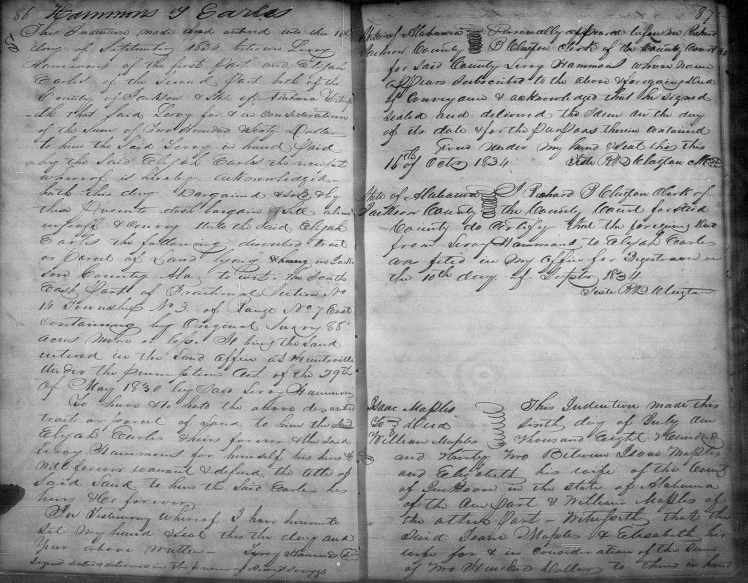 86 Hammons to Earles
This Indenture made and entered into the 10th
day of September 1834 between Leroy
Hammons of the first Part and Elijah
Earles of the Second Part both of the
County of Jackson & State of Alabama
that Said Leroy for & in Consideration
of the Sum of Two Hundred & Sixty Dollars
to him the Said Leroy in hand Paid
by the Said Elijah Earles the receipt
whereof is hereby acknowledged
hath this day Bargained & Sold & by
these Presents doth bargain & Sell alien
& Convey Unto the Said Elijah
Earles the following described tract
or Parcel of Land lying & being in Jack
son County Ala to wit. The South
East Part of Fractional Section No
14 Township No 3 of Range No 7 East
Containing by Original Survey 88
acres more or less. It being the Land
entered in the Land Office at Huntsville
Under the Preemption Act of the 29th
of May 1830 by Said Leroy Hammons
To have & to hold the above described
tract or Parcel of Land to him the Said
Elijah Earles & heirs forever & the Said
Leroy Hammons for himself his heirs &
will forever warrant & defend the title of
Said Land to him the Said Earles his
heirs &c forever
In Testimony whereof I have hereunto
Set my hand & Seal this the day and
year above written - Leroy Hammons
Signed Sealed & delivered in the Presence of
87
State of Alabama Personally appeared before me Richard
Jackson County P Clayton Clerk of the County Court
for Said County Leroy Hammons whose name
appears Subscribed to the above & foregoing Deed
of Conveyance & acknowledged that he Signed
Sealed and delivered the Same on the day
of its date & for the Purposes therein contained
Given Under my hand & Seal this the
16th of Octr 1834
State of Alabama I Richard P Clayton Clerk of
Jackson County the County Court for Said
County do Certify that the foregoing Deed
from Leroy Hammons to Elijah Earles
was filed in my Office for Registration on
the 10th day of Septr 1834.
Isaac Maples This Indenture made this
To Deed sixth day of July one
William Maples thousand Eight Hundred
and thirty Two Between Isaac Maples
and Elizabeth his wife of the County
of Jackson in the State of Alabama
of the one Part & William Maples of
the other Part - Witnesseth that the
Said Isaac Maples & Elizabeth his
wife for & in Consideration of the Sum
of Two Hundred Dollars to them in hand